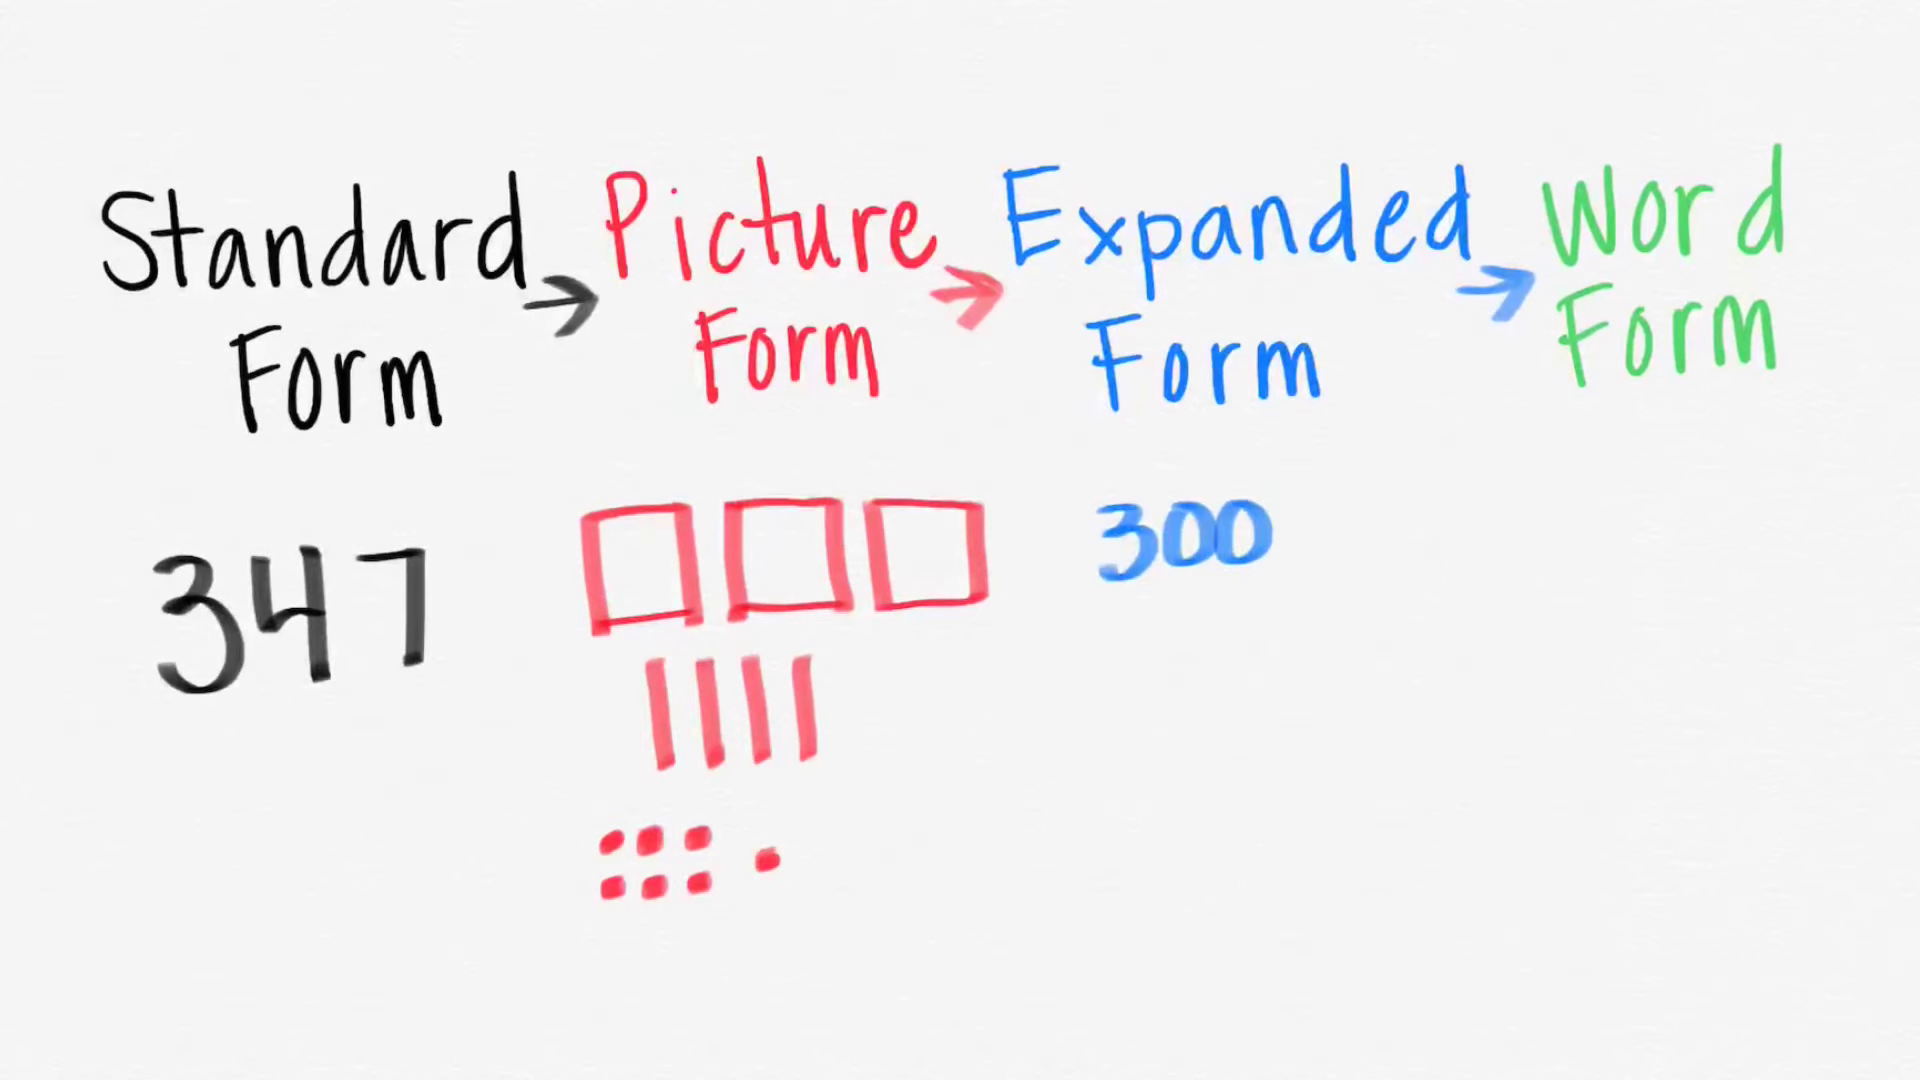 Standard Form
Picture Form
Expanded Form
Word Form
347
300